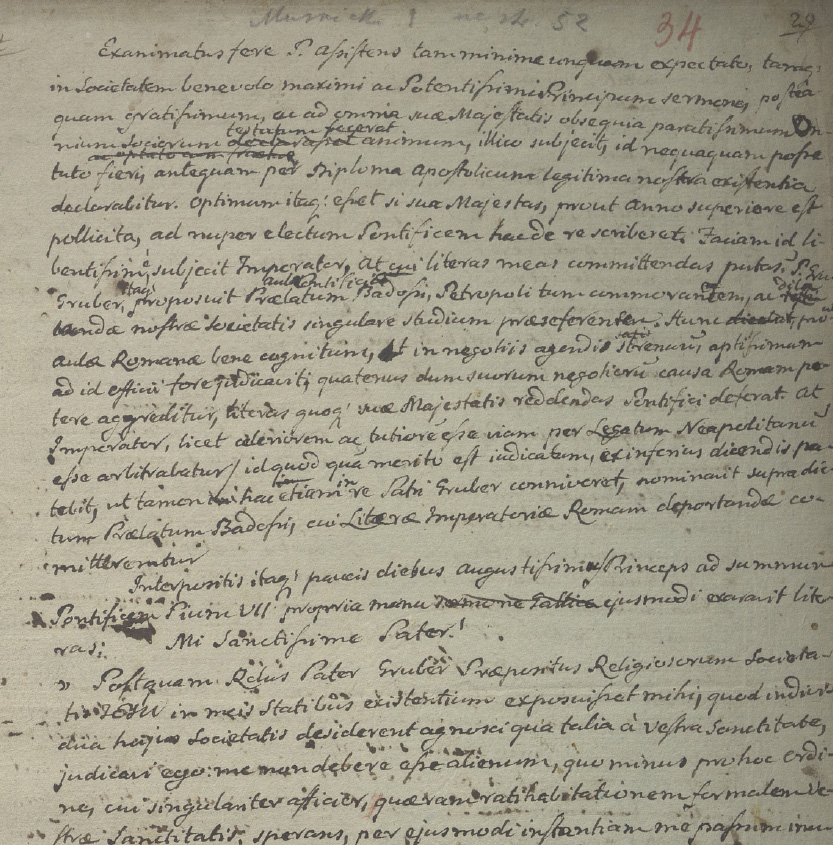 34
29
Exanimatus fere P. Assistens tam minime unquam expectato, tamq:
in Societatem benevolo maximi ac Potentissimi Principum sermone, postea
quam gratissimum, ac ad omnia suæ Majestatis obsequia paratissimum Om-
nium Sociorum testatum fecerat animum, illico subjecit, id nequaquam posse
tuto fieri, antequam per Diploma Apostolicum legitima nostra existentia
declarabitur. Optimum itaq: esset si sua Majestas, prout Anno superiore est
pollicita, ad nuper electum Pontificem hac de re scriberet. Faciam id li-
bentissime, subjecit Imperator, At cui literas meas committendas putas? P. Gru
Gruber, itaq proposuit Prælatum Badossi, Petropoli tum commorantem, ac
nostræ Societatis singulare studium præseferentem. Hunc pro
aulæ Romanæ bene cognitum, et in negotiis agendis satis strenuum, aptissimum
ad id officii fore judicavit, quatenus dum suorum negotiorum causa Romam pe-
tere aggreditur, literas quoq suæ Majestatis reddendas Pontifici deferat. At
Imperator, licet celeriorem ac tutiorem esse viam per Legatum Neapolitanum
esse arbitrabatur / id quod quam merito est judicatum, ex inferius dicendis pa-
tebit, ut tamen hac etiam in re Patri Gruber conniveret, nominavit supra dic-
tum Prælatum Badossi, cui Literæ Imperatoriæ Romam deportandæ co-
mitterentur
Interpositis itaq paucis diebus Augustissimus Princeps ad summum
Pontificem Pium VII propria manu ejusmodi exaravit lite-
ras: Mi Sanctissime Pater!
„ Postquam Rdus Pater Gruber Præpositus Religiosorum Societa-
tis JESU in meis Statibus existentium exposuisset mihi, quod indivi-
dua hujus Societatis desiderent agnosci qua talia à Vestra Sanctitate,
judicavi ego: me non debere esse alienum, quo minus pro hoc ordi-
ne, cui singulariter afficior, quæram ratihabitationem formalem Ve-
stræ Sanctitatis, sperans, per ejusmodi instantiam me passum inu-